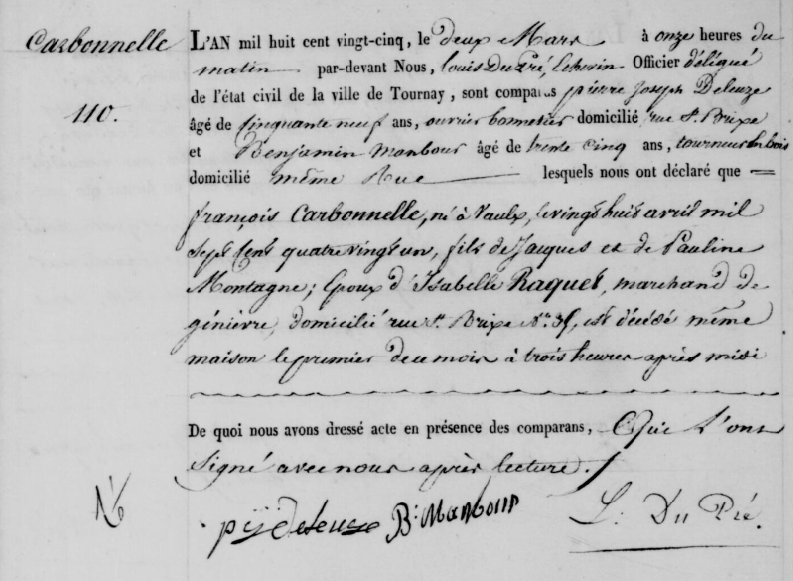 Carbonnelle
110.
L'AN mil huit cent vingt-cinq, le deux Mars à onze heures du
matin par-devant Nous, Louis Du Pré, Echevin Officier délégué
de l'état civil de la ville de Tournay, sont comparus pierre Joseph Deleuze
âgé de Cinquante neuf ans, ouvrier bonnetier domicilié rue St. Brixe
et Benjamin Manbour âgé de trente cinq ans, tourneur en bois
domicilié même Rue lesquels nous ont déclaré que
françois Carbonnelle, né à Vaulx, le vingt huit avril mil
sept Cent quatre vingt un, fils de Jacques et de Pauline
Montagne; Epoux d'Isabelle Raquet, marchand de
génièvre, domicilié rue St. Brixe No. 35, est décédé même
maison le premier de ce mois à trois heures après midi
De quoi nous avons dressé acte en présence des comparans, Qui l'ont
signé avec nous après lecture.
pjj deleuze B. Manbour L. Du Pré.